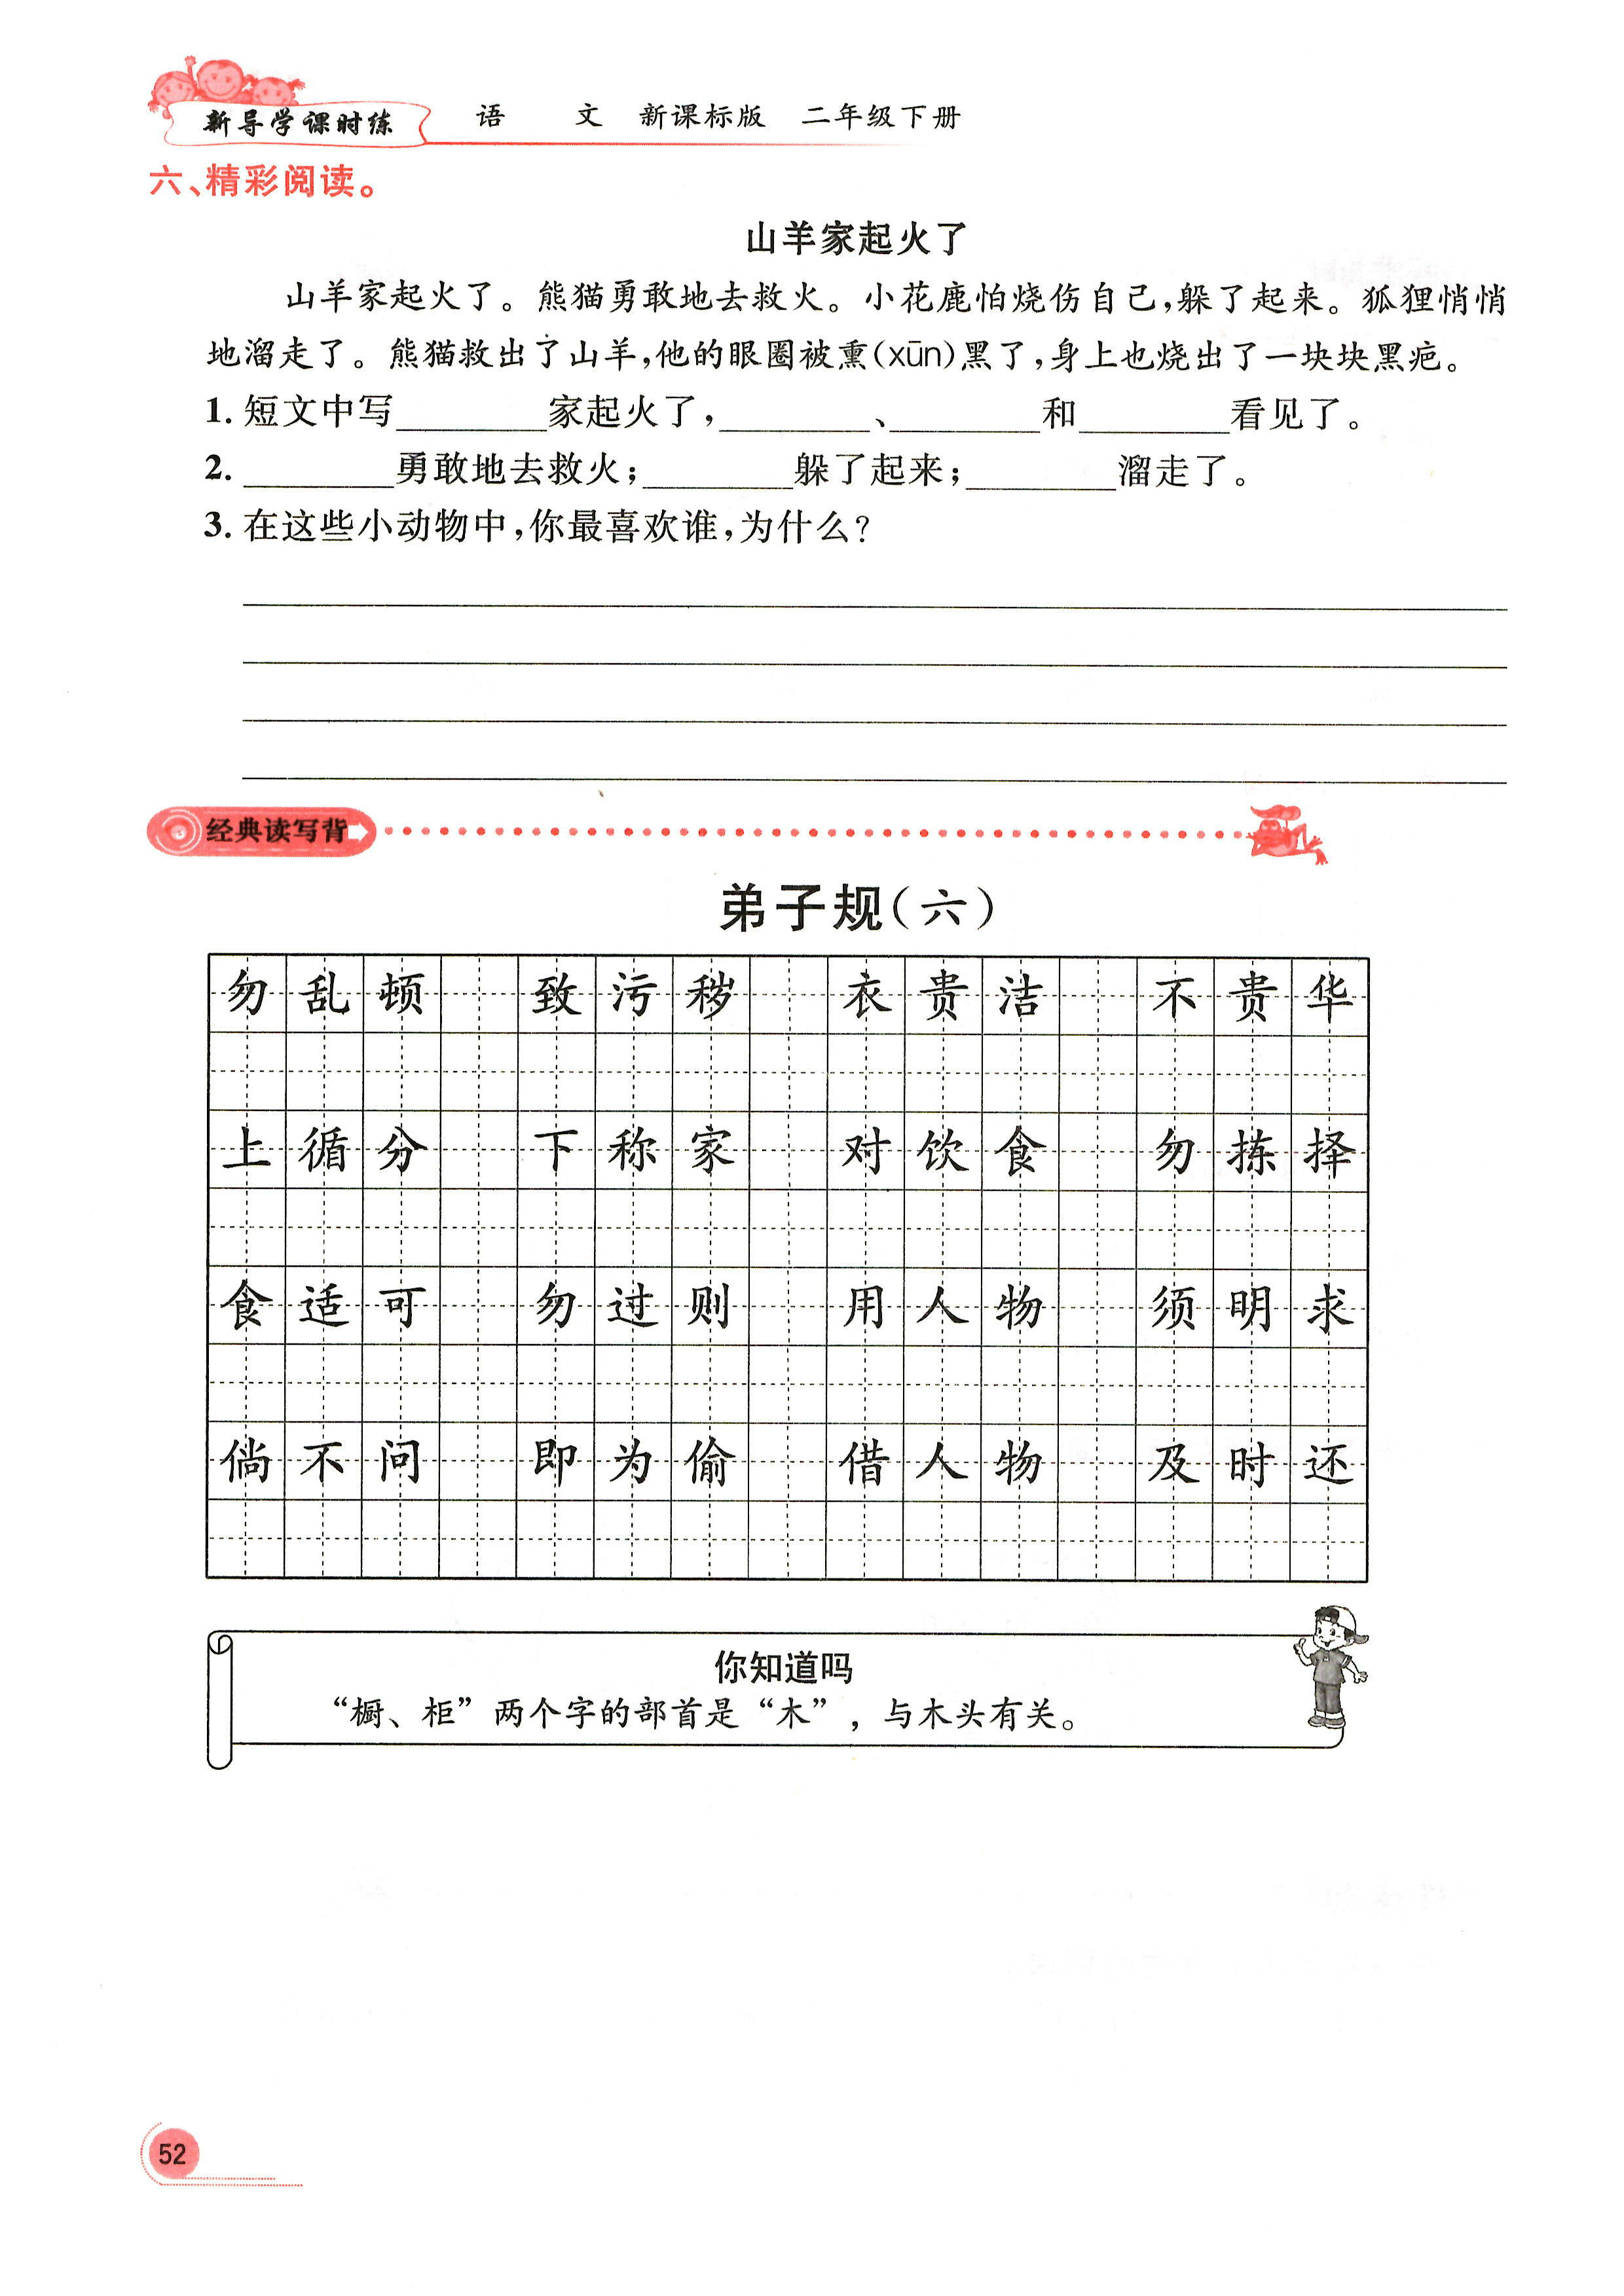 新导学课时练 语 文 新课标版 二年级下册
六、精彩阅读。
山羊家起火了
山羊家起火了。熊猫勇敢地去救火。小花鹿怕烧伤自己,躲了起来。狐狸悄悄
地溜走了。熊猫救出了山羊,他的眼圈被熏(xūn)黑了,身上也烧出了一块块黑疤。
1. 短文中写________家起火了,________、________和________看见了。
2. ________勇敢地去救火;________躲了起来;________溜走了。
3. 在这些小动物中,你最喜欢谁,为什么?
经典读写背
弟子规(六)
勿乱顿 致污秽 衣贵洁 不贵华
上循分 下称家 对饮食 勿拣择
食适可 勿过则 用人物 须明求
倘不问 即为偷 借人物 及时还
你知道吗
“橱、柜”两个字的部首是“木”,与木头有关。
52